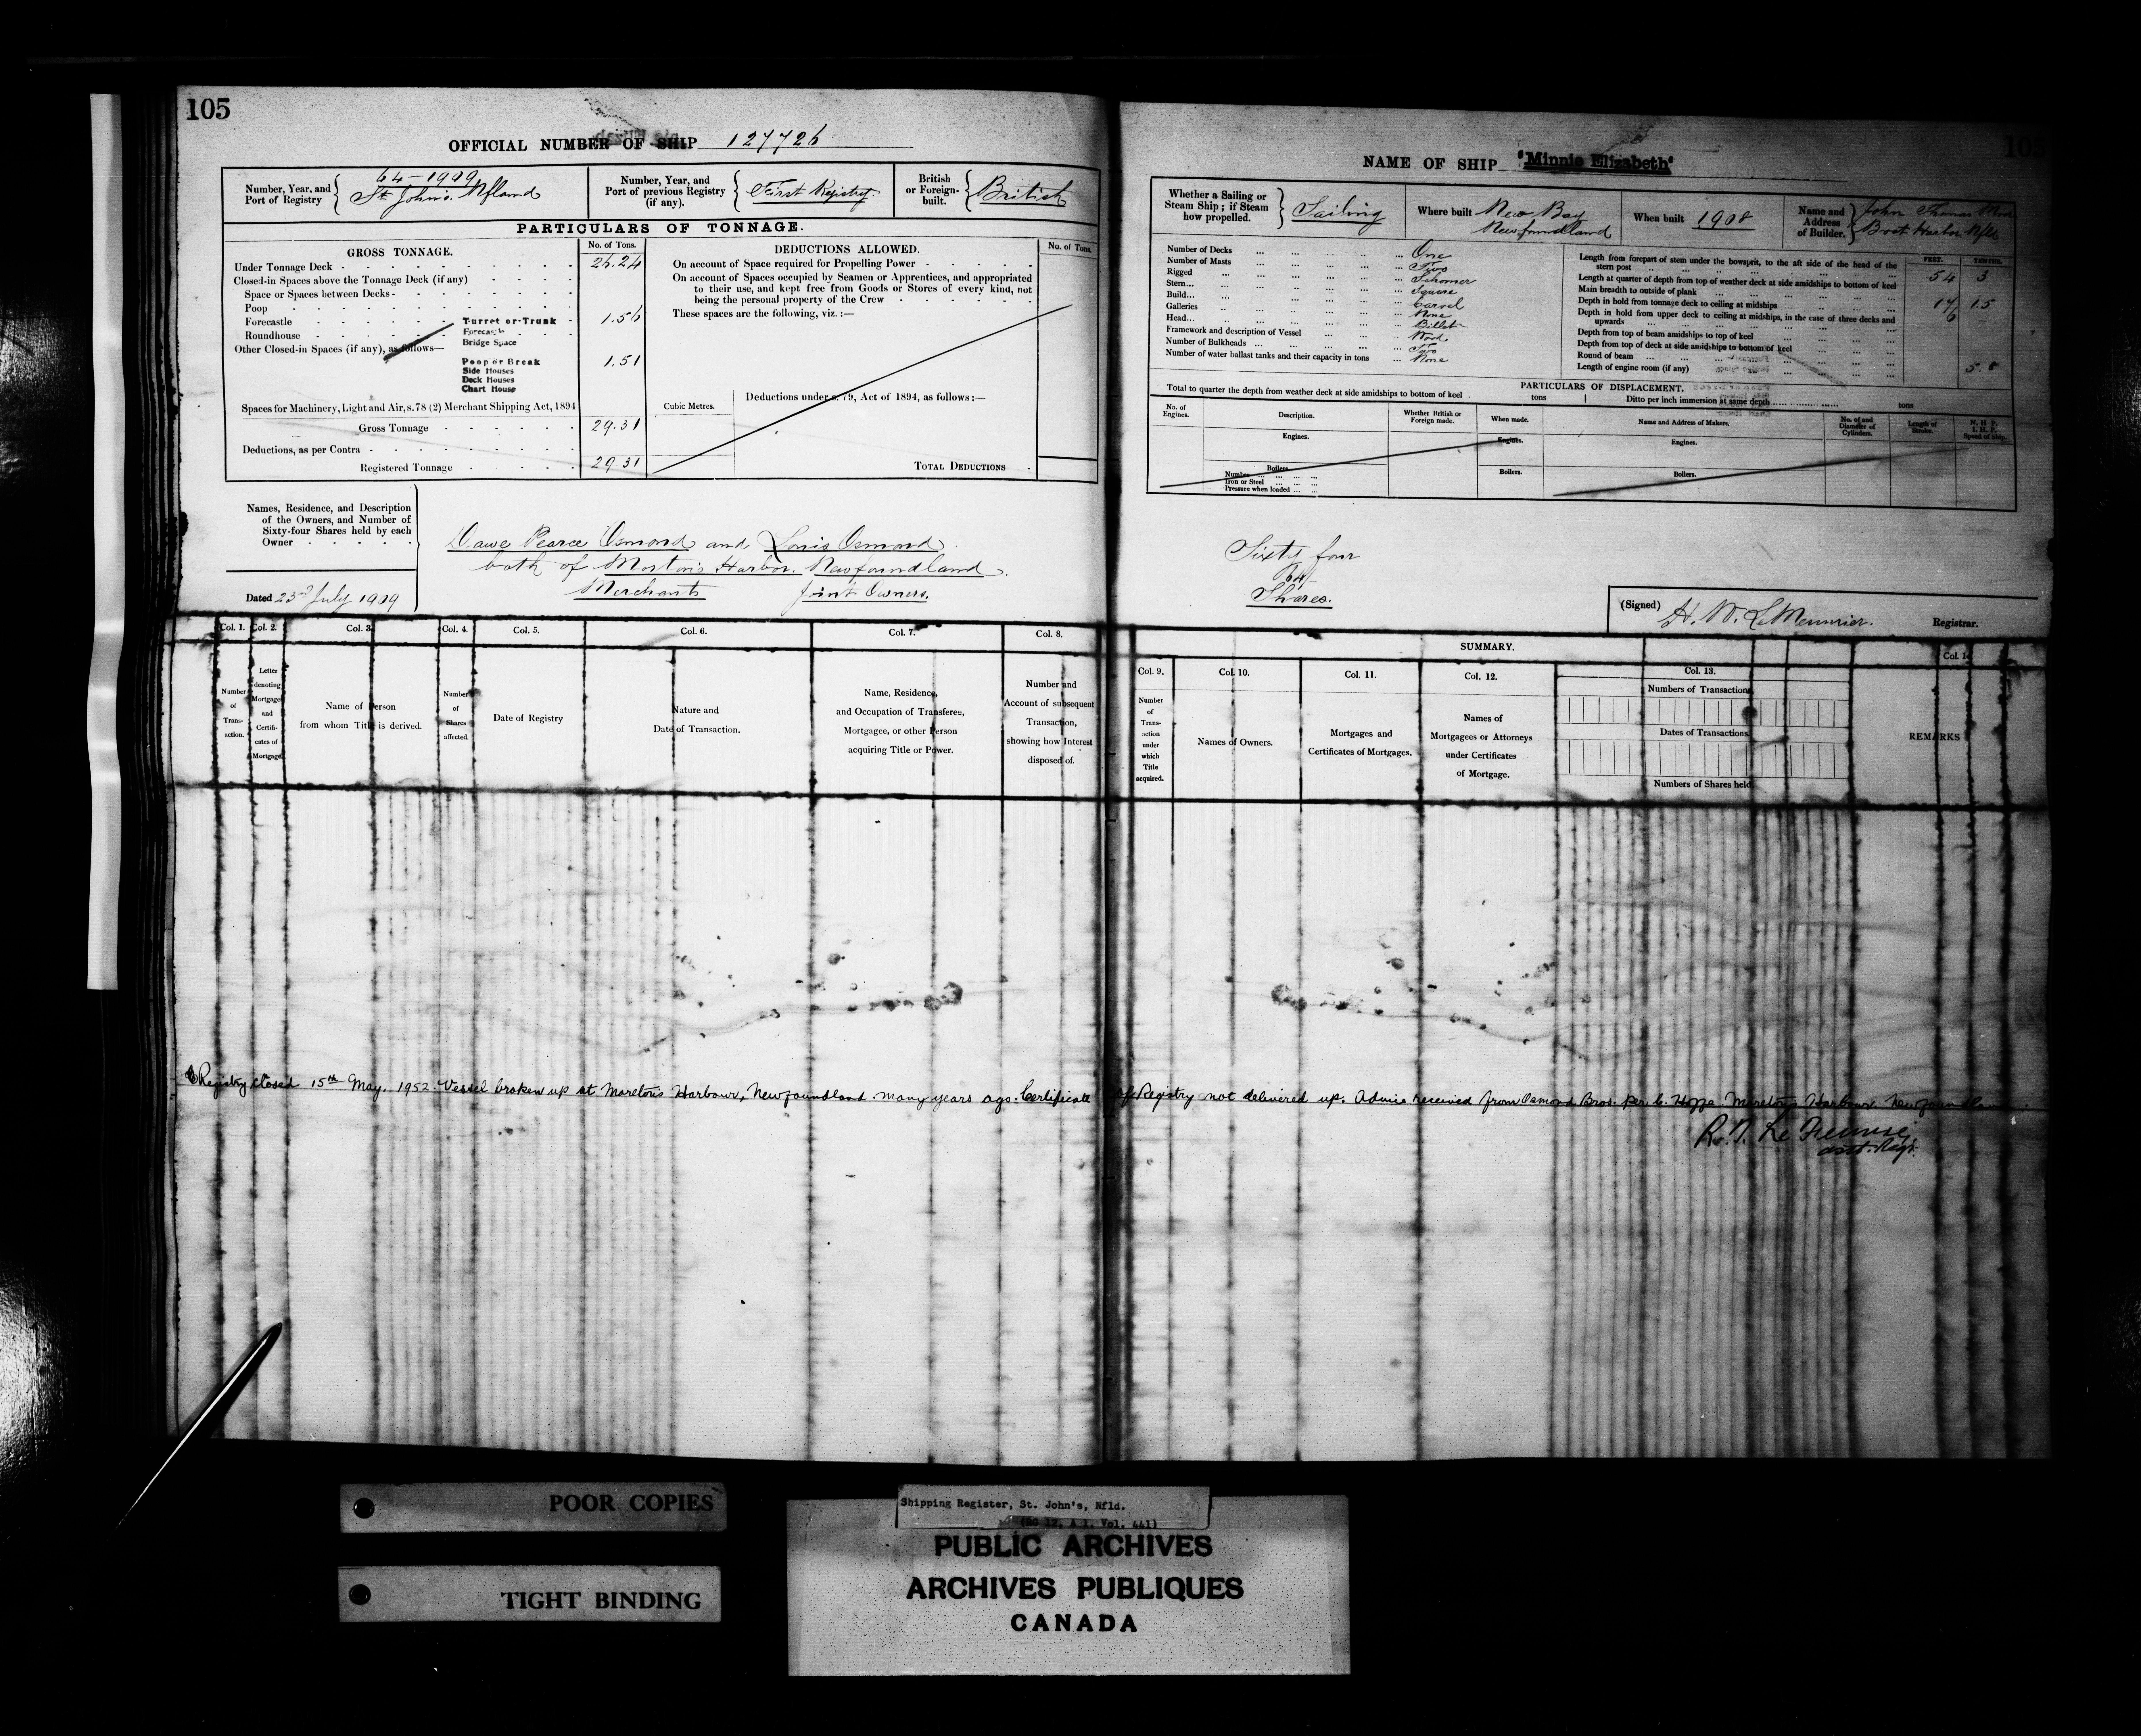 105
OFFICIAL NUMBER OF SHIP 127726
Number, Year, and
Port of Registry
64-1909
St. John's. Nfland
Number, Year, and
Port of previous Registry
(if any).
First Registry.
British
or Foreign-
built.
British
PARTICULARS OF TONNAGE.
GROSS TONNAGE.
No. of Tons.
Under Tonnage Deck 26.24
Closed-in Spaces above the Tonnage Deck (if any)
Space or Spaces between Decks
Poop
Forecastle
Turret or Trunk 1.56
Roundhouse
Forecastle
Bridge Space
Other Closed-in Spaces (if any), as follows—
Poop or Break 1.51
Side Houses
Deck Houses
Chart House
Spaces for Machinery, Light and Air, s. 78 (2) Merchant Shipping Act, 1894
Gross Tonnage 29.31
Deductions, as per Contra
Registered Tonnage 29.31
DEDUCTIONS ALLOWED.
No. of Tons.
On account of Space required for Propelling Power
On account of Spaces occupied by Seamen or Apprentices, and appropriated
to their use, and kept free from Goods or Stores of every kind, not
being the personal property of the Crew
These spaces are the following, viz.:—
Cubic Metres.
Deductions under s. 79, Act of 1894, as follows:—
TOTAL DEDUCTIONS
Names, Residence, and Description
of the Owners, and Number of
Sixty-four Shares held by each
Owner
Dated 23rd July 1909
Dawe Pearce Osmond and Louis Osmond
both of Morton's Harbor. Newfoundland.
Merchants Joint Owners.
Col. 1.
Col. 2.
Col. 3.
Col. 4.
Col. 5.
Col. 6.
Col. 7.
Col. 8.
Number
of
Trans-
action.
Letter
denoting
Mortgage
and
Certifi-
cates of
Mortgage
Name of Person
from whom Title is derived.
Number
of
Shares
affected.
Date of Registry
Nature and
Date of Transaction.
Name, Residence,
and Occupation of Transferee,
Mortgagee, or other Person
acquiring Title or Power.
Number and
Account of subsequent
Transaction,
showing how Interest
disposed of.
NAME OF SHIP "Minnie Elizabeth"
Whether a Sailing or
Steam Ship; if Steam
how propelled.
Sailing
Where built New Bay
Newfoundland
When built 1908
Name and
Address
of Builder.
John Thomas
Boot Harbor Nfld
Number of Decks One
Number of Masts Two
Rigged Schooner
Stern Square
Build Carvel
Galleries None
Head Billet
Framework and description of Vessel Wood
Number of Bulkheads Two
Number of water ballast tanks and their capacity in tons None
FEET. TENTHS.
Length from forepart of stem under the bowsprit, to the aft side of the head of the
stern post 54 3
Length at quarter of depth from top of weather deck at side amidships to bottom of keel
Main breadth to outside of plank 17 1.5
Depth in hold from tonnage deck to ceiling at midships 6
Depth in hold from upper deck to ceiling at midships, in the case of three decks and
upwards
Depth from top of beam amidships to top of keel
Depth from top of deck at side amidships to bottom of keel
Round of beam
Length of engine room (if any)
PARTICULARS OF DISPLACEMENT.
Total to quarter the depth from weather deck at side amidships to bottom of keel tons
Ditto per inch immersion at same depth tons
No. of
Engines.
Description.
Whether British or
Foreign made.
When made.
Name and Address of Makers.
No. of and
Diameter of
Cylinders.
Length of
Stroke.
N. H. P.
I. H. P.
Speed of Ship.
Engines.
Engines.
Engines.
Boilers.
Number
Iron or Steel
Pressure when loaded
Boilers.
Boilers.
Sixty four
64
Shares.
(Signed) H. W. LeMessurier. Registrar.
SUMMARY.
Col. 9.
Col. 10.
Col. 11.
Col. 12.
Col. 13.
Col. 14
Number
of
Trans-
action
under
which
Title
acquired.
Names of Owners.
Mortgages and
Certificates of Mortgages.
Names of
Mortgagees or Attorneys
under Certificates
of Mortgage.
Numbers of Transactions
Dates of Transactions
Numbers of Shares held
REMARKS
Registry closed 15th May, 1952. Vessel broken up at Moreton's Harbour, Newfoundland many years ago. Certificate of Registry not delivered up. Advice received from Osmond Bros. per Moreton's Harbour, Newfoundland
asst. Regr.
POOR COPIES
TIGHT BINDING
Shipping Register, St. John's, Nfld.
(RG 12, A 1, Vol. 441)
PUBLIC ARCHIVES
ARCHIVES PUBLIQUES
CANADA